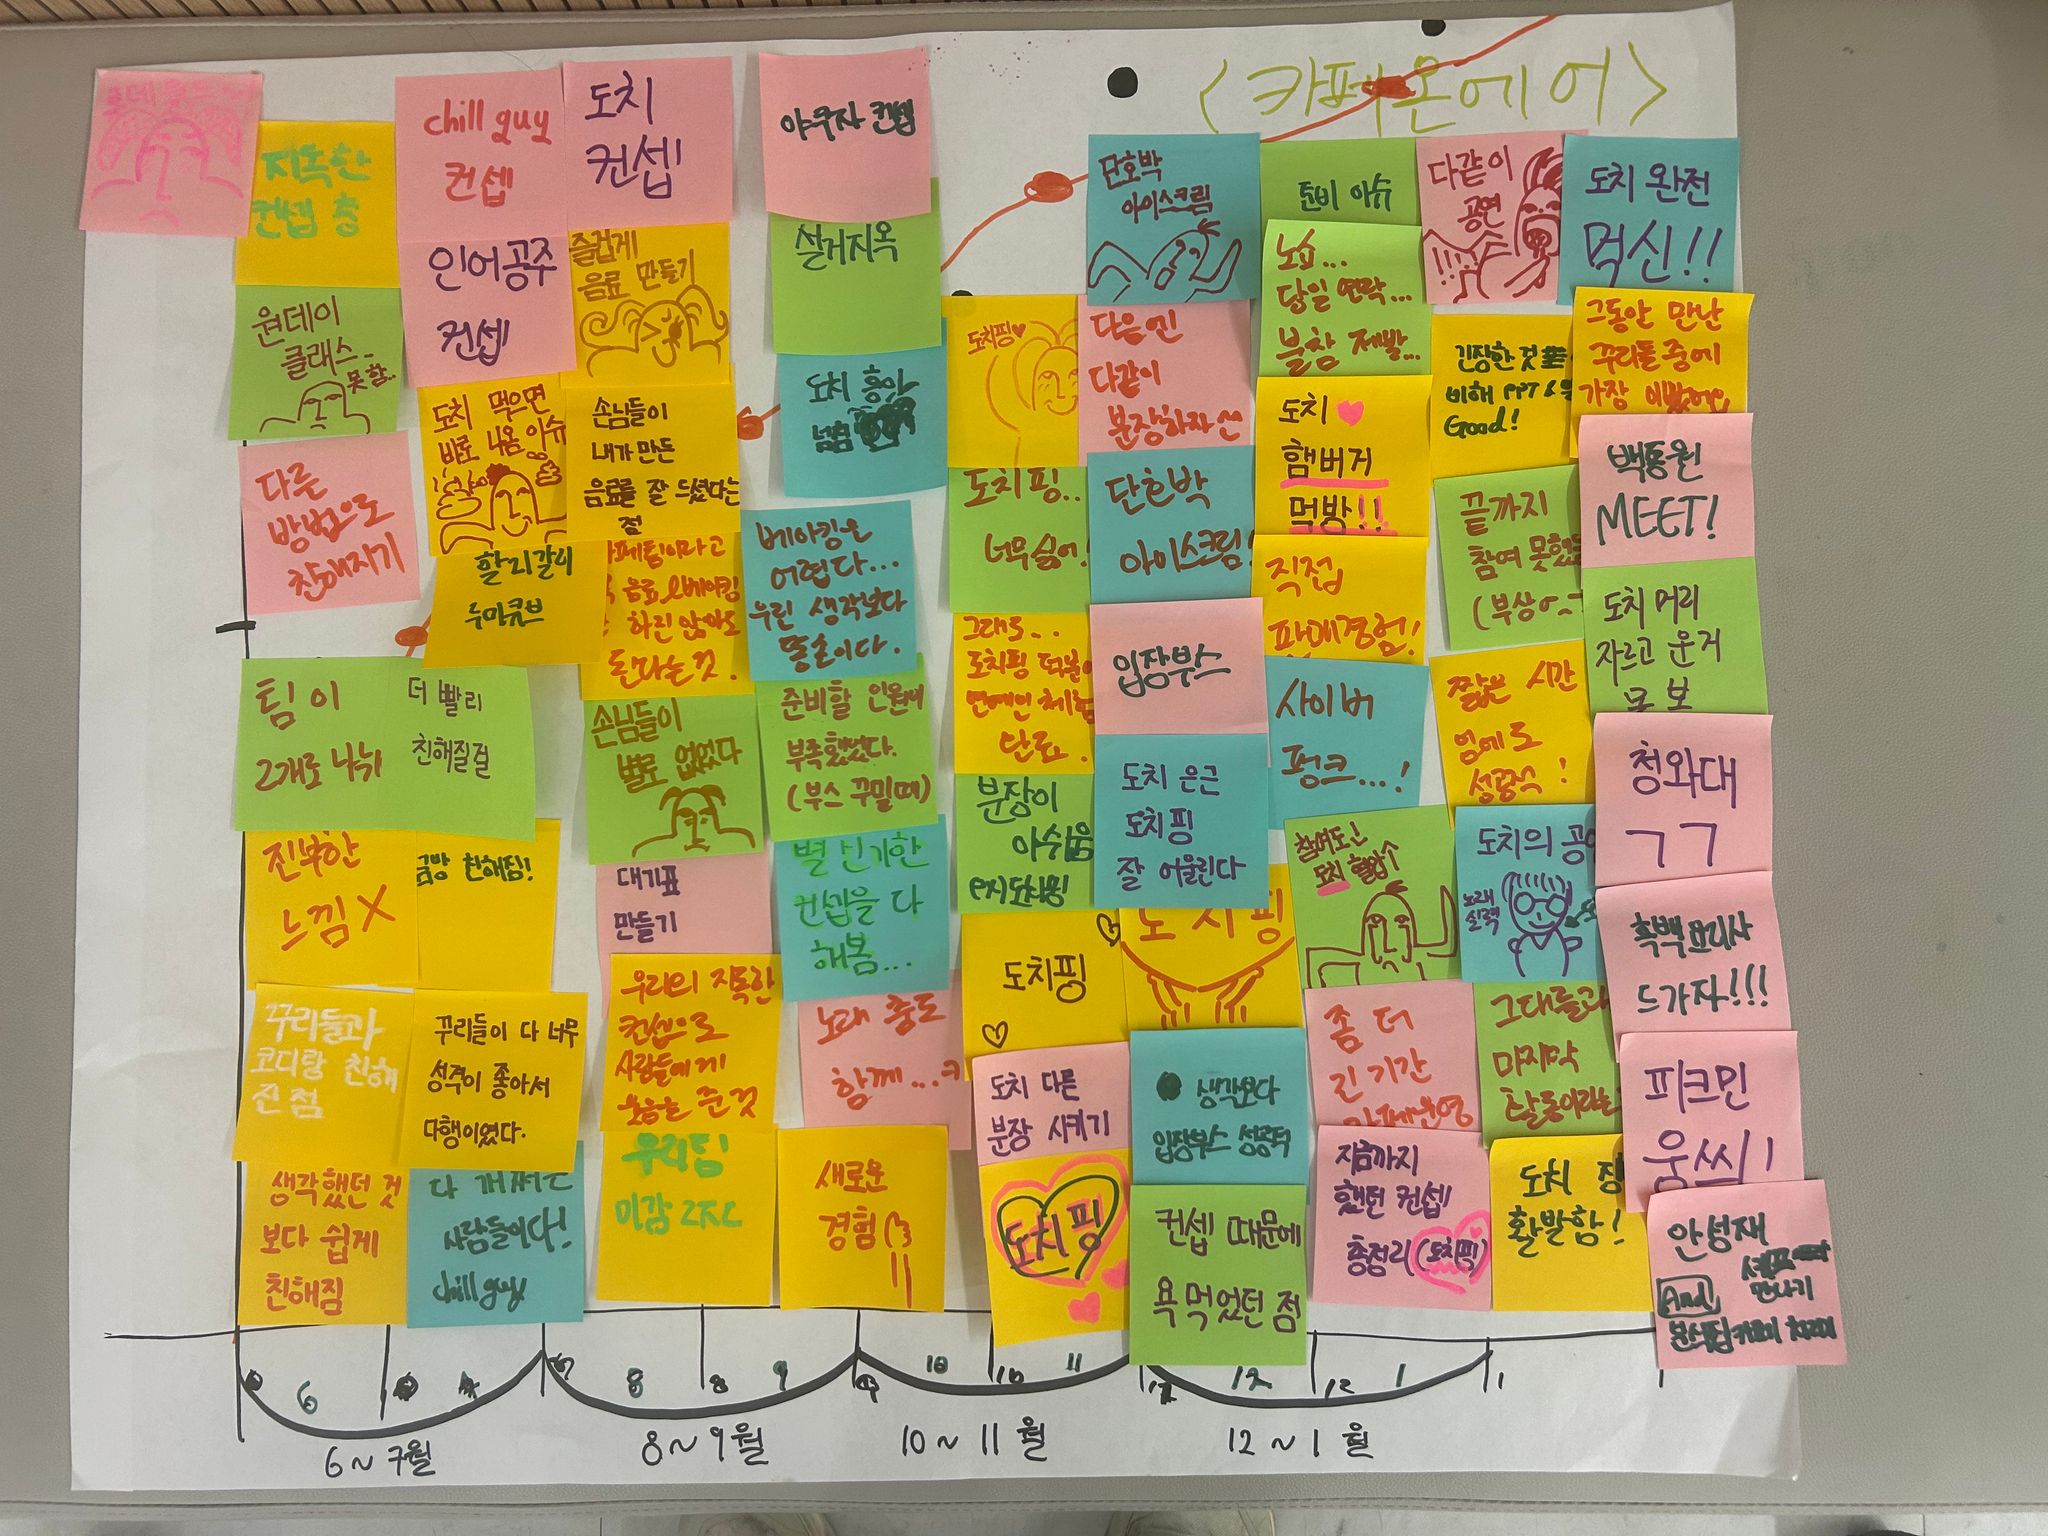 <카페온에어>
지독한
컨셉 충
원데이
클래스..
못함..
다른
방법으로
친해지기
팀이
2개로 나뉘
더 빨리
친해질걸
진부한
느낌 X
금방 친해짐!
꾸리들과
코디랑 친해
진 점
꾸리들이 다 너무
성격이 좋아서
다행이었다.
생각했던 것
보다 쉽게
친해짐
사람들이다!
chill guy
chill guy
컨셉
인어공주
컨셉
도치 먹으면
바로 나옴 이슈
할리갈리
루미큐브
도치
컨셉
즐겁게
음료 만들기
손님들이
내가 만든
음료를 잘 드셨다는
점
카페팀이라고
음료 & 베이킹
하진 않아도
된다는 것.
손님들이
별로 없었다
대기표
만들기
우리의 지독한
컨셉으로
사람들에게
웃음을 준 것
우리팀
미감 ㄹㅈㄷ
야쿠자 컨셉
설거지옥
도치 흥이
넘침
베이킹은
어렵다...
우린 생각보다
똥손이다.
준비할 인원이
부족했었다.
(부스 꾸밀때)
별 신기한
컨셉을 다
해봄...
노래 춤도
함께...ㅋ
새로운
경험!!
도치핑♥
도치핑..
너무 싫어!
그래도..
도치핑 덕분에
연예인 체험
단료.
분장이
아쉬움
도치핑
도치 다른
분장 시키기
도치핑
단호박
아이스크림
다음엔
다같이
분장하자
단호박
아이스크림!
입장부스
도치 은근
도치핑
잘 어울린다
도치핑
생각보다
입장부스 성공적
컨셉 때문에
욕 먹었던 점
준비 이슈
노쇼...
당일 연락...
불참 제발...
도치 ♥
햄버거
먹방!!
직접
판매경험!
사이버
펑크...!
참여도!
도치 혈압↑
좀 더
긴 기간
카페운영
지금까지
했던 컨셉
총정리 (도치핑)
다같이
공연
긴장한 것
비해 PPT &
Good!
끝까지
참여 못했
(부상
짧은 시간
임에도
성공적!
도치의 공
노래
실력
그대들과
마지막
활동이라는
도치 장
활발함!
도치 완전
먹신!!
그동안 만난
꾸리들 중에
가장 이뻤어요
백통원
MEET!
도치 머리
자르고 운거
못 봄
청와대
ㄱㄱ
흑백요리사
드가자!!!
피크민
움쓰!
안성재
셰프
만나기
And
6
8
8
9
9
10
10
11
12
12
1
1
6~7월
8~9월
10~11월
12~1월